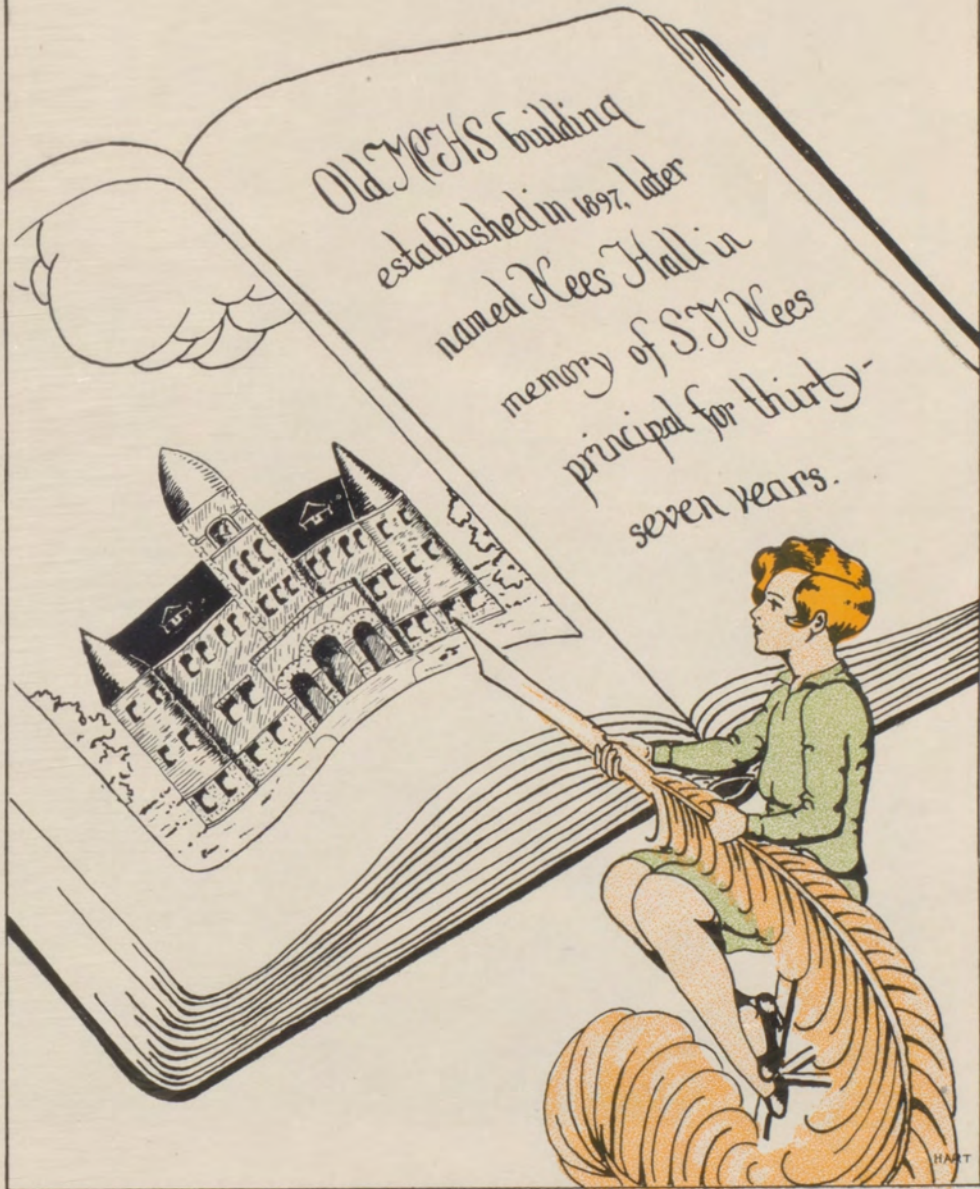 Old McHS building
established in 1897, later
named Nees Hall in
memory of S.M Nees
principal for thirty-
seven years.
HART